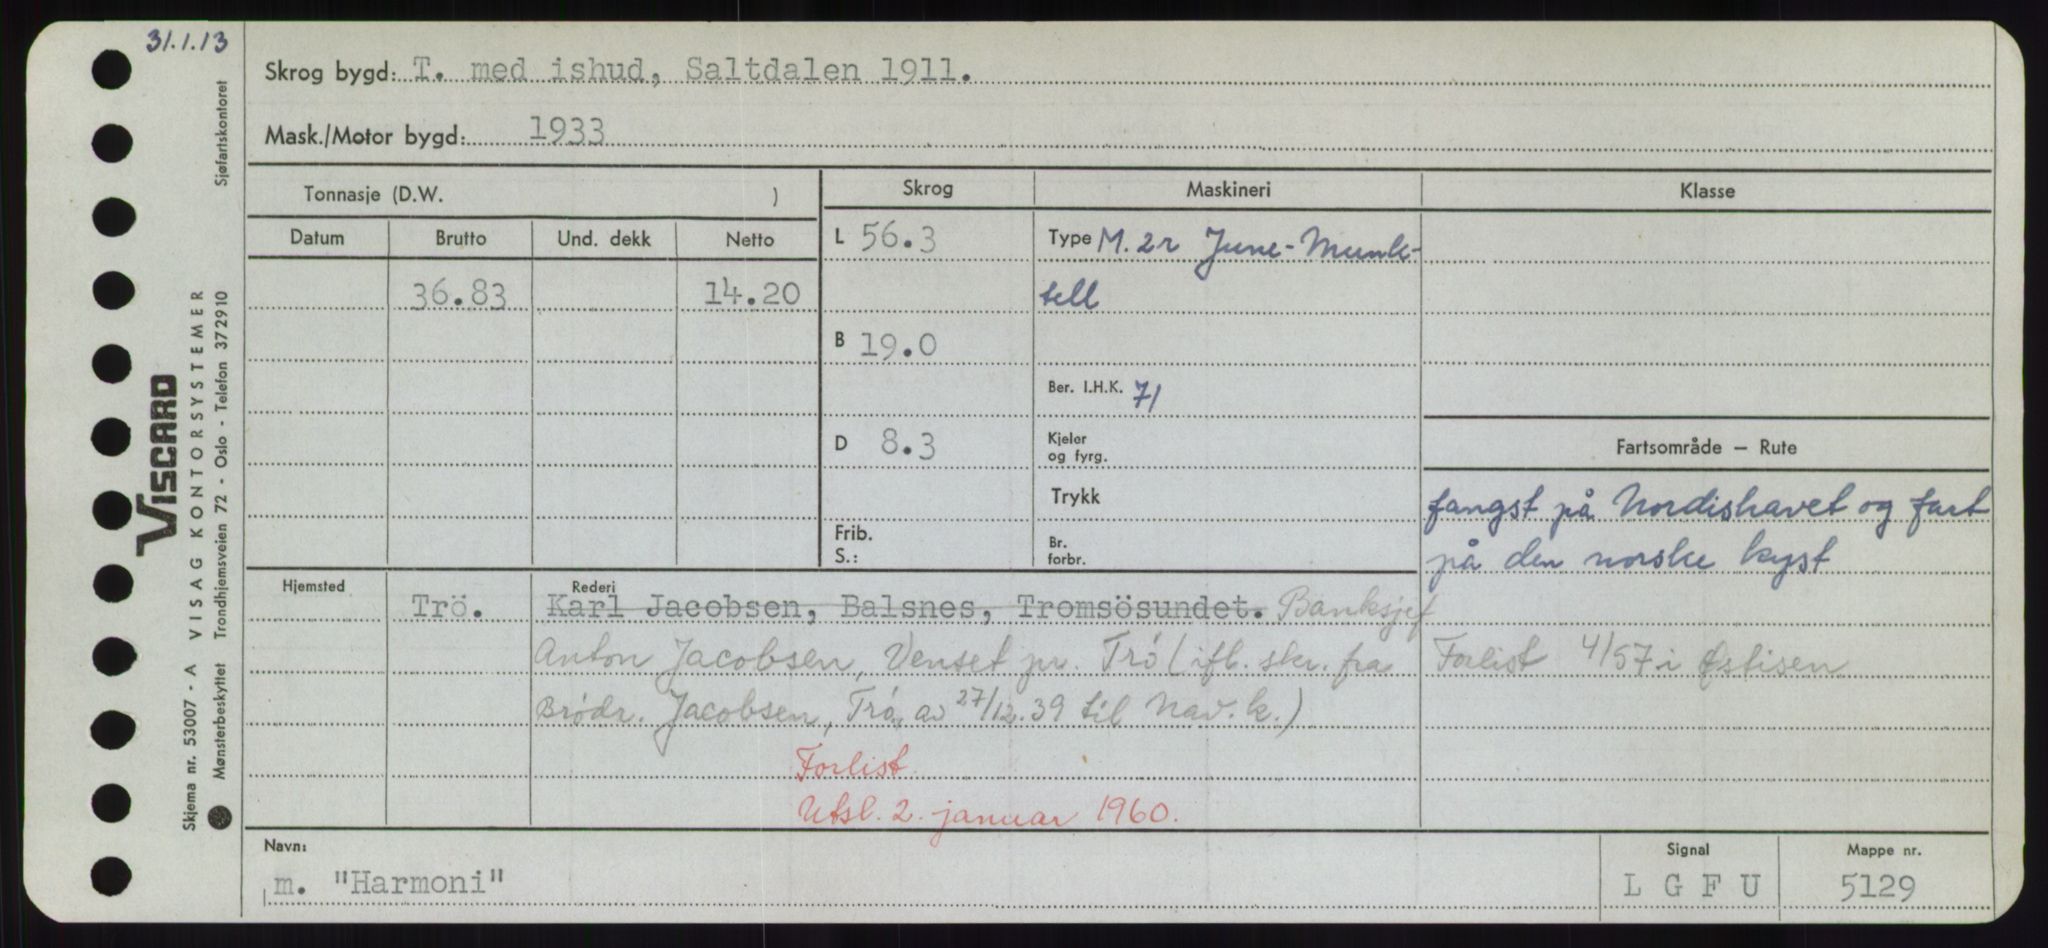 31.1.13
Skrog bygd: T. med ishud, Saltdalen 1911.
Mask./Motor bygd: 1933
Tonnasje (D.W. )
Skrog
Maskineri
Klasse
Datum
Brutto
Und. dekk
Netto
L 56.3
Type M. 2r June-Munk-
36.83
14.20
tell
B 19.0
Ber. I.H.K. 71
D 8.3
Kjeler
og fyrg.
Fartsområde — Rute
Trykk
fangst på Nordishavet og fart
Frib.
S.:
Br.
forbr.
på den norske kyst
Hjemsted
Trö.
Rederi
Karl Jacobsen, Balsnes, Tromsösundet. Banksjef
Anton Jacobsen, Venset pr. Trö (ifl. skr. fra
Forlist 4/57 i Østisen
Brödr. Jacobsen, Trö, av 27/12.39 til Nav.k.)
Forlist
Utsl. 2. januar 1960.
Navn:
m. "Harmoni"
Signal
L G F U
Mappe nr.
5129
Sjøfartskontoret
VISCARD
VISAG KONTORSYSTEMER
Trondhjemsveien 72 - Oslo - Telefon 372910
Skjema nr. 53007 - A
Mønsterbeskyttet